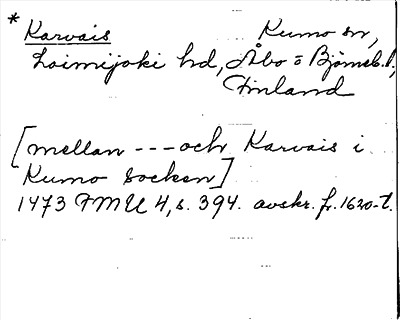 * Karvais Kumo sn,
Loimijoki hd, Åbo o Björneb. l;
Finland
[mellan --- och Karvais i
Kumo socken]
1473 FMU 4, s. 394. avskr. fr. 1620-t.